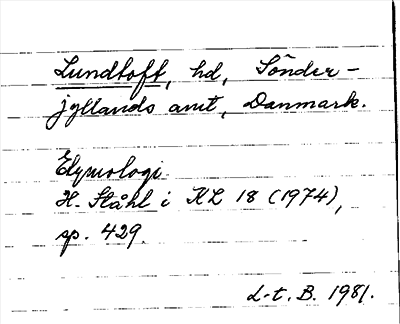 Lundtoft, hd, Sönder-
jyllands amt, Danmark.
Etymologi.
H. Ståhl i KL 18 (1974),
sp. 429.
L-t. B. 1981.